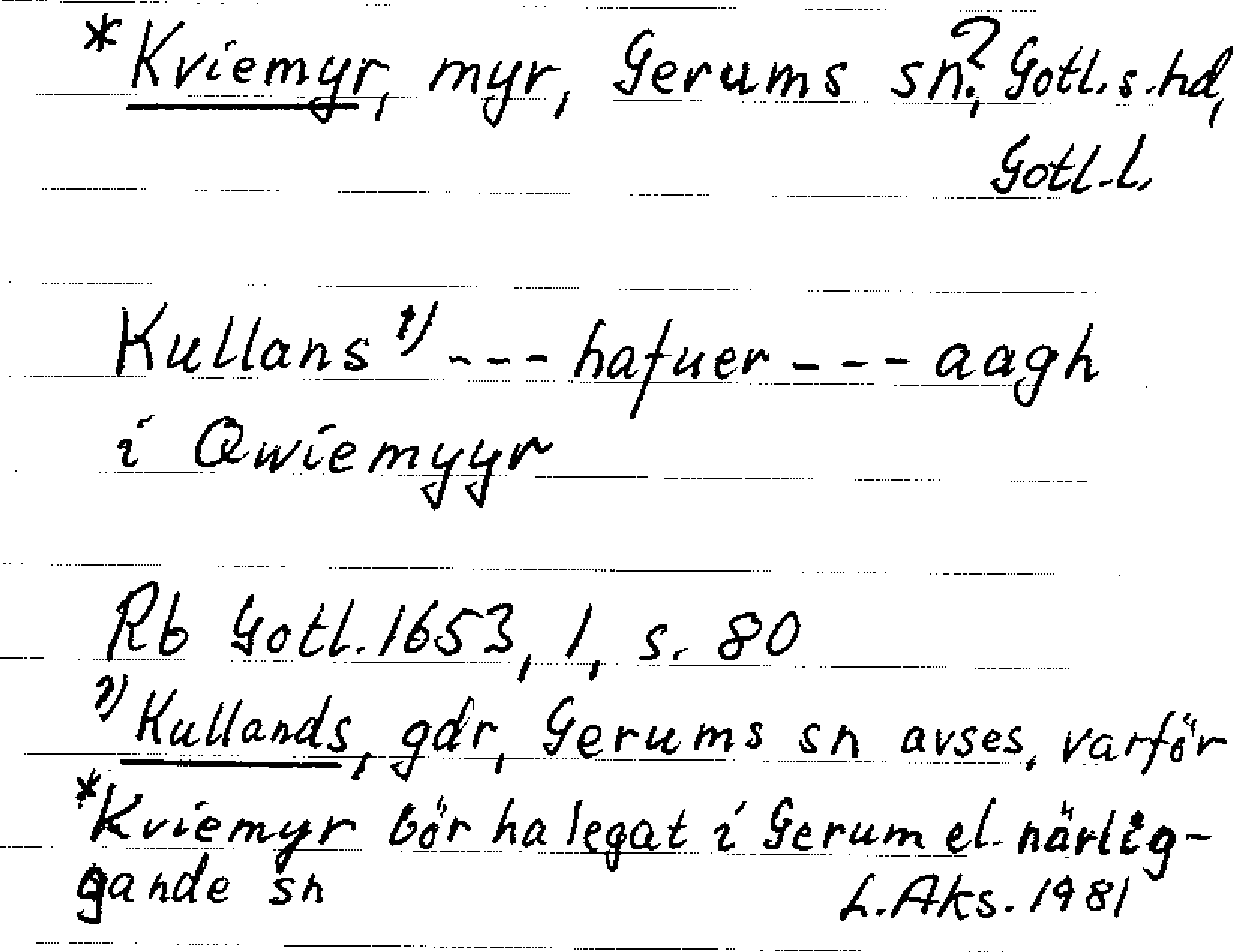 *Kviemyr, myr, Gerums sn?, Gotl. s. hd,
Gotl. l.
Kullans 1) --- hafuer --- aagh
i Qwiemyyr
Rb Gotl. 1653, 1, s. 80
1) Kullands, gdr, Gerums sn avses, varför
*Kviemyr bör ha legat i Gerum el. närlig-
gande sn
L. Aks. 1981